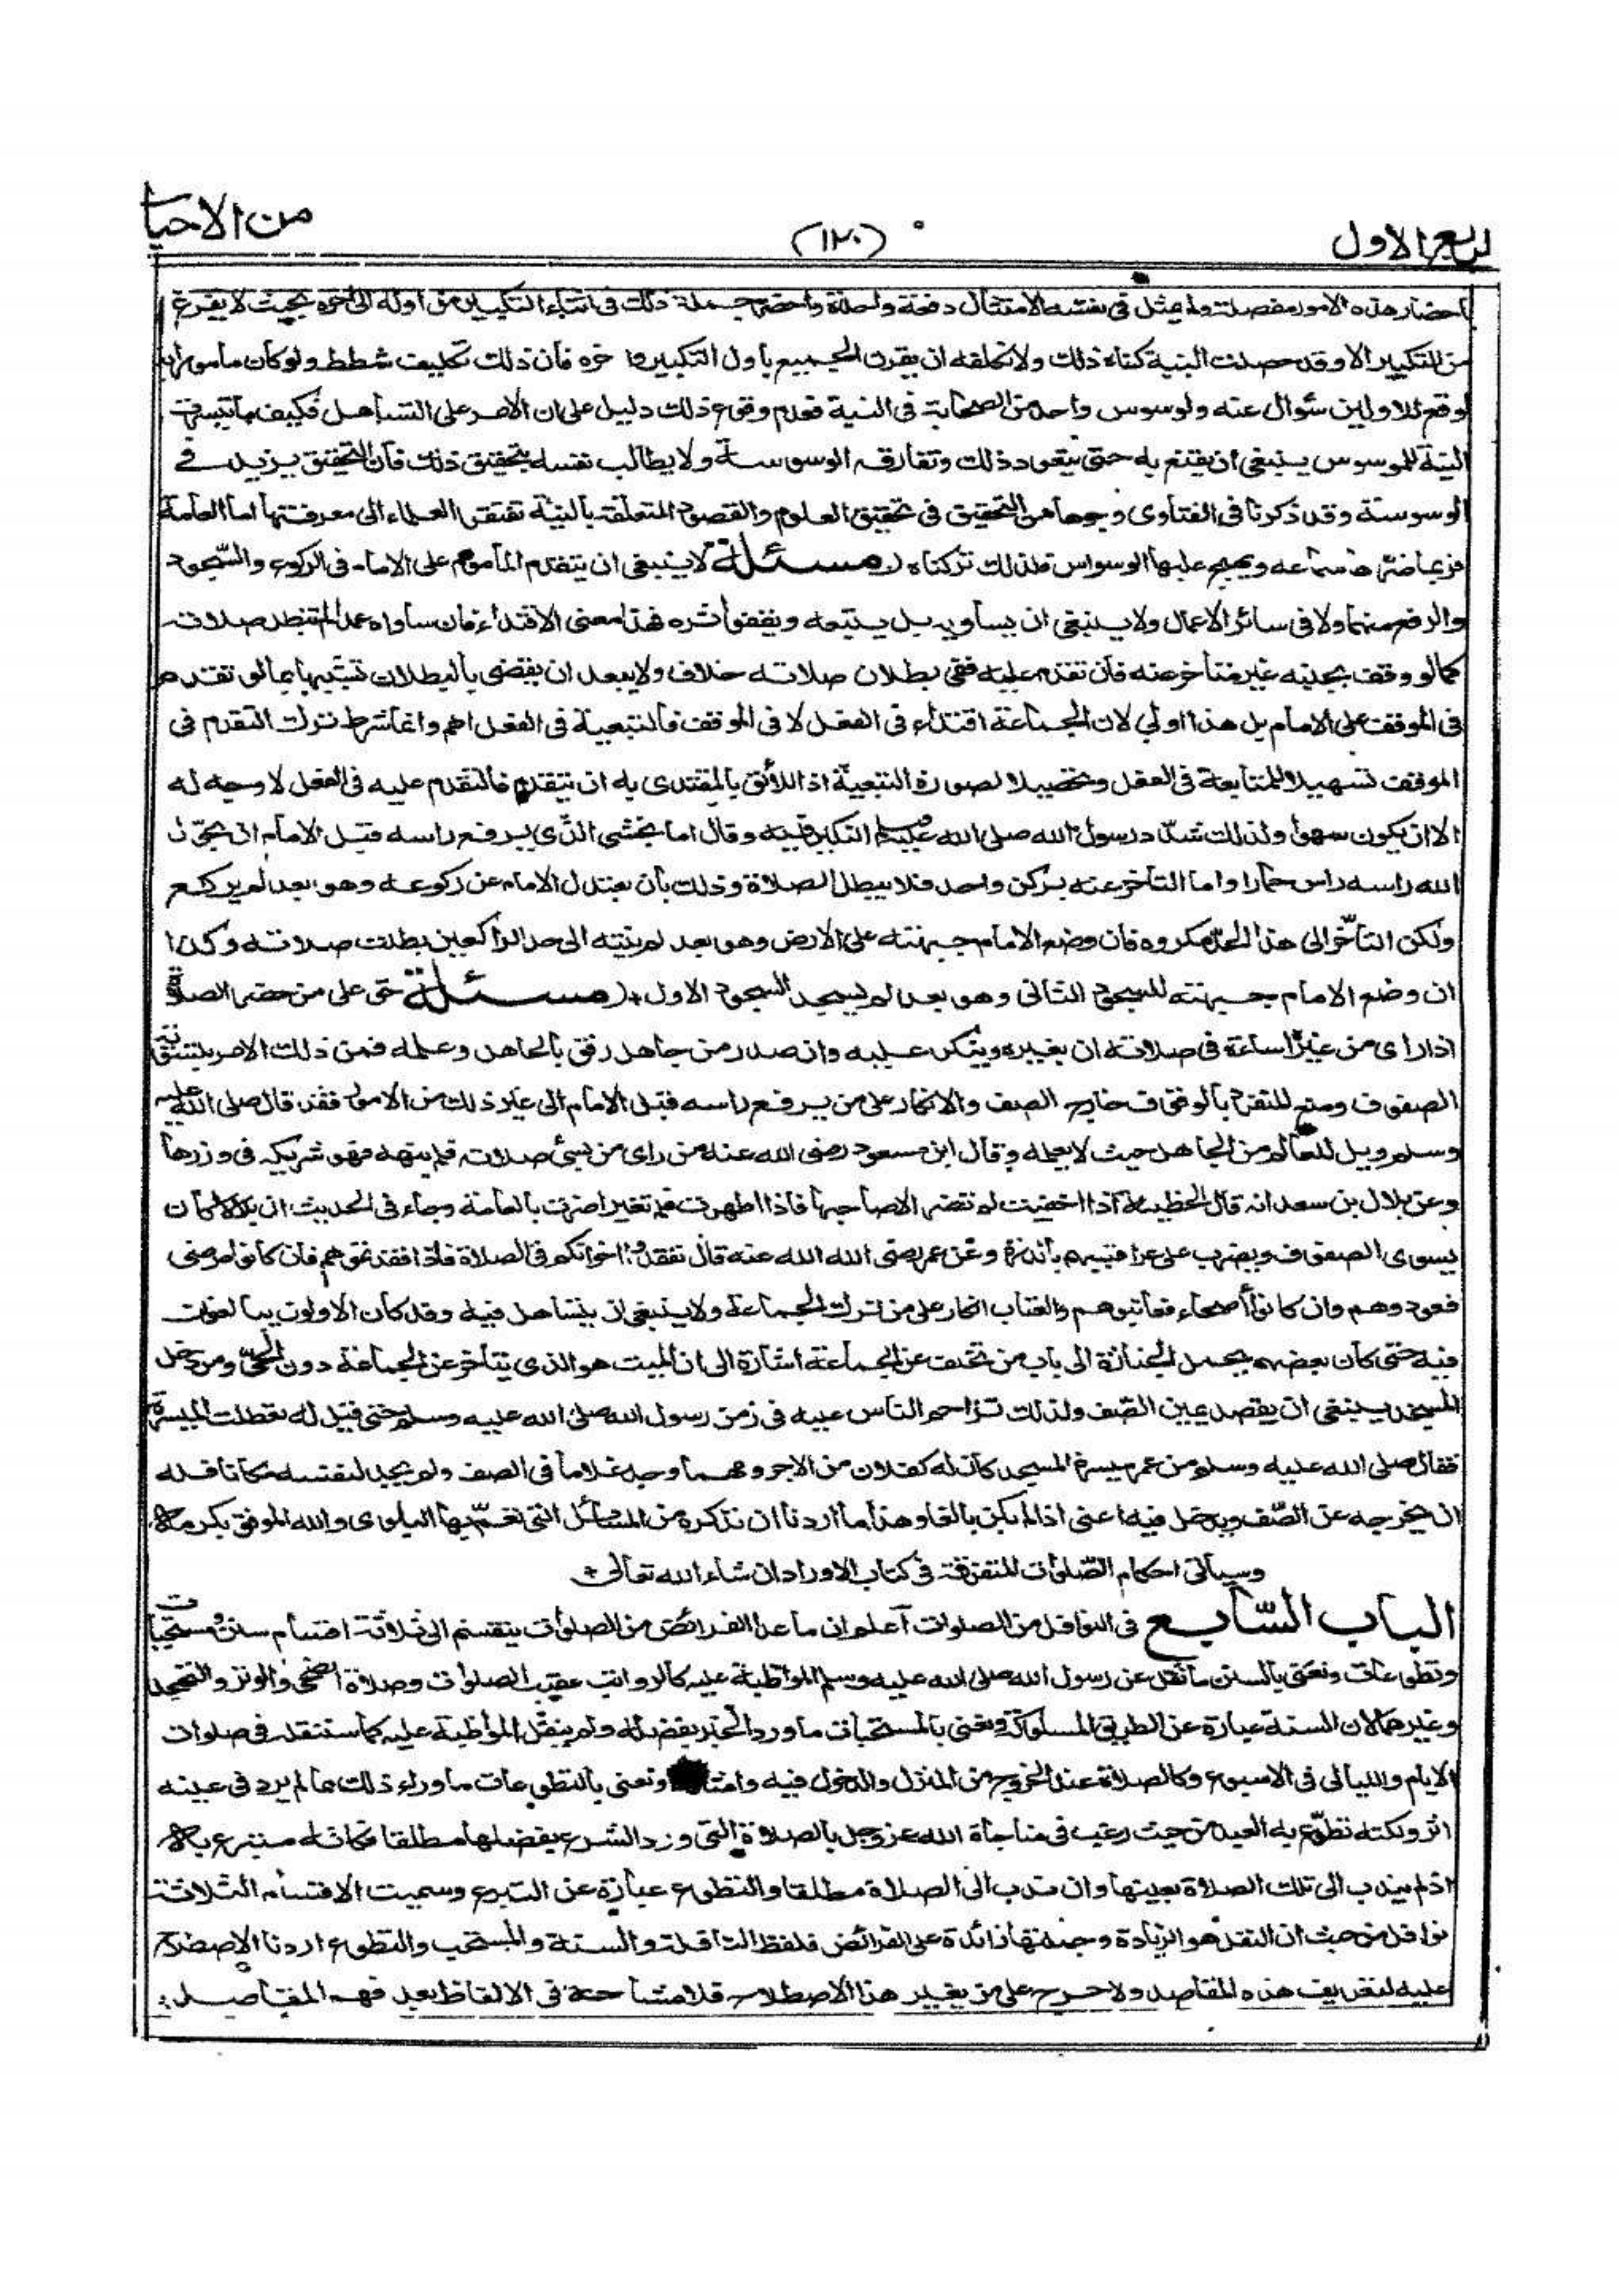 ربع الاول
(١٢٠)
من الاحيا
احضار هذه الامور مفصلة ولم يمثل في نفسه الامتثال دفعة واحدة واحضر جملة ذلك في اثناء التكبير من اوله الى اخره بحيث لا يفرغ
من التكبير الا وقد حصلت النية كفاه ذلك ولا نكلفه ان يقرن الجميع باول التكبير واخره فان ذلك تكليف شطط ولو كان مامورا به
لوقع للاولين سؤال عنه ولوسوس واحد من الصحابة في النية فعدم وقوع ذلك دليل على ان الامر على التساهل فكيف ما تيسرت
النية للموسوس ينبغي ان يقنع به حتى يتعود ذلك وتفارقه الوسوسة ولا يطالب نفسه بتحقيق ذلك فان التحقيق يزيد في
الوسوسة وقد ذكرنا في الفتاوى وجوها من التحقيق في تحقيق العلوم والقصود المتعلقة بالنية تفتقر العلماء الى معرفتها اما العامة
فربما ضرها سماعه ويهيج عليها الوسواس فلذلك تركناه (مسئلة لا ينبغي ان يتقدم المأموم على الامام في الركوع والسجود
والرفع منهما ولا في سائر الاعمال ولا ينبغي ان يساويه بل يتبعه ويقفو أثره فهذا معنى الاقتداء فان ساواه عمدا لم تبطل صلاته
كما لو وقف بجنبه غير متأخر عنه فان تقدم عليه ففي بطلان صلاته خلاف ولا يبعد ان يقضى بالبطلان تشبيها بما لو تقدم
في الموقف على الامام بل هذا اولى لان الجماعة اقتداء في الفعل لا في الموقف فالتبعية في الفعل اهم وانما شرط ترك التقدم في
الموقف تسهيلا للمتابعة في الفعل وتحصيلا لصورة التبعية اذ اللائق بالمقتدى به ان يتقدم فالتقدم عليه في الفعل لا وجه له
الا ان يكون سهوا ولذلك شدد رسول الله صلى الله عليه وسلم النكير فيه وقال اما يخشى الذي يرفع راسه قبل الامام ان يحول
الله راسه راس حمار واما التأخر عنه بركن واحد فلا يبطل الصلاة وذلك بأن يعتدل الامام عن ركوعه وهو بعد لم يركع
ولكن التأخر الى هذا الحد مكروه فان وضع الامام جبهته على الارض وهو بعد لم ينته الى حد الراكعين بطلت صلاته وكذا
ان وضع الامام جبهته للسجود الثاني وهو بعد لم يسجد السجود الاول (مسئلة حق على من حضر الصلاة
اذا راى من غيره اساءة في صلاته ان يغيره وينكر عليه وان صدر من جاهل رفق بالجاهل وعلمه فمن ذلك الامر بتسوية
الصفوف ومنع المنفرد بالوقوف خارج الصف والانكار على من يرفع راسه قبل الامام الى غير ذلك من الامور فقد قال صلى الله عليه
وسلم ويل للعالم من الجاهل حيث لا يعلمه وقال ابن مسعود رضي الله عنه من راى من يسئ صلاته فلم ينهه فهو شريكه في وزرها
وعن بلال بن سعد انه قال الخطيئة اذا اخفيت لم تضر الا صاحبها فاذا اظهرت فلم تغير اضرت بالعامة وجاء في الحديث ان بلالا كان
يسوى الصفوف ويضرب على عراقيبهم بالدرة وعن عمر رضي الله الله عنه قال تفقدوا اخوانكم في الصلاة فاذا فقدتموهم فان كانوا مرضى
فعودوهم وان كانوا أصحاء فعاتبوهم والعتاب انكار على من ترك الجماعة ولا ينبغي ان يتساهل فيه وقد كان الاولون يبالغون
فيه حتى كان بعضهم يحمل الجنازة الى باب من تخلف عن الجماعة اشارة الى ان الميت هو الذي يتأخر عن الجماعة دون الحي ومن دخل
المسجد ينبغي ان يقصد يمين الصف ولذلك تزاحم الناس عليه في زمن رسول الله صلى الله عليه وسلم حتى قيل له تعطلت الميسرة
فقال صلى الله عليه وسلم من عمر ميسرة المسجد كان له كفلان من الاجر ومهما وجد غلاما في الصف ولم يجد لنفسه مكانا فله
ان يخرجه عن الصف ويدخل فيه اعنى اذا لم يكن بالغا وهذا ما أردنا ان نذكره من المسائل التي تعم بها البلوى والله الموفق بكرمه
وسيأتى احكام الصلوات المتفرقة في كتاب الاوراد ان شاء الله تعالى
الباب السابع في النوافل من الصلوات اعلم ان ما عدا الفرائض من الصلوات ينقسم الى ثلاثة اقسام سنن ومستحبات
وتطوعات ونعنى بالسنن ما نقل عن رسول الله صلى الله عليه وسلم المواظبة عليه كالرواتب عقيب الصلوات وصلاة الضحى والوتر والتهجد
وغيرها لان السنة عبارة عن الطريق المسلوكة ونعنى بالمستحبات ما ورد الخبر بفضله ولم ينقل المواظبة عليه كما سننقله في صلوات
الايام والليالى في الاسبوع وكالصلاة عند الخروج من المنزل والدخول فيه ونعنى بالتطوعات ما وراء ذلك مما لم يرد في عينه
اثر ولكنه تطوع به العبد من حيث رغب في مناجاة الله عز وجل بالصلاة التي ورد الشرع بفضلها مطلقا فكانه متبرع به
اذ لم يندب الى تلك الصلاة بعينها وان ندب الى الصلاة مطلقا والتطوع عبارة عن التبرع وسميت الاقسام الثلاثة
نوافل من حيث ان النفل هو الزيادة وجملتها زائدة على الفرائض فلفظ النافلة والسنة والمستحب والتطوع اردنا الاصطلاح
عليه لتعريف هذه المقاصد ولا حرج على من يغير هذا الاصطلاح فلا مشاحة في الالفاظ بعد فهم المقاصد